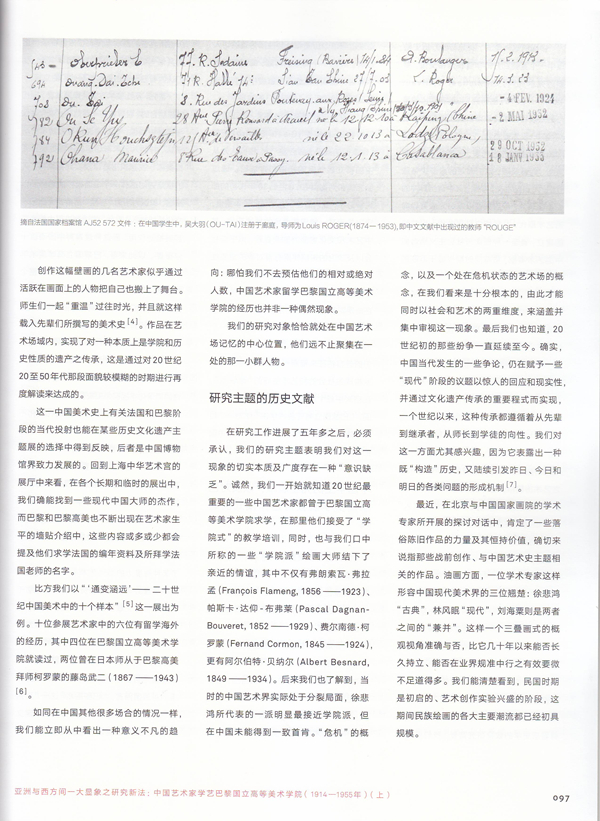 摘自法国国家档案馆 AJ52 572 文件：在中国学生中，吴大羽（OU-TAI）注册于画庭，导师为Louis ROGER(1874— 1953),即中文文献中出现过的教师 "ROUGE"
创作这幅壁画的几名艺术家似乎通过
活跃在画面上的人物把自己也搬上了舞台。
师生们一起“重温”过往时光，并且就这样
载入先辈们所撰写的美术史[4]。作品在艺
术场域内，实现了对一种本质上是学院和历
史性质的遗产之传承，这是通过对 20 世纪
20 至 50 年代那段面貌较模糊的时期进行再
度解读来达成的。
这一中国美术史上有关法国和巴黎阶
段的当代投射也能在某些历史文化遗产主
题展的选择中得到反映，后者是中国博物
馆界致力发展的。回到上海中华艺术宫的
展厅中来看，在各个长期和临时的展出中，
我们确能找到一些现代中国大师的杰作，
而巴黎和巴黎高美也不断出现在艺术家生
平的墙贴介绍中，这些内容或多或少都会
提及他们求学法国的编年资料及所拜学法
国老师的名字。
比方我们以“‘通变涵远’—— 二十世
纪中国美术中的十个样本”[5]这一展出为
例。十位参展艺术家中的六位有留学海外
的经历，其中四位在巴黎国立高等美术学
院就读过，两位曾在日本师从于巴黎高美
拜师柯罗蒙的藤岛武二（1867 —1943）
[6]。
如同在中国其他很多场合的情况一样，
我们能立即从中看出一种意义不凡的趋
向：哪怕我们不去预估他们的相对或绝对
人数，中国艺术家留学巴黎国立高等美术
学院的经历也并非一种偶然现象。
我们的研究对象恰恰就处在中国艺术
场记忆的中心位置，他们远不止聚集在一
处的那一小群人物。
研究主题的历史文献
在研究工作进展了五年多之后，必须
承认，我们的研究主题表明我们对这一
现象的切实本质及广度存在一种“意识缺
乏”。诚然，我们一开始就知道20世纪最
重要的一些中国艺术家都曾于巴黎国立高
等美术学院求学，在那里他们接受了“学
院式”的教学培训，同时，也与我们口中
所称的一些“学院派”绘画大师结下了
亲近的情谊，其中不仅有弗朗索瓦·弗拉
孟(François Flameng, 1856 —1923)、
帕斯卡·达仰 - 布弗莱 (Pascal Dagnan-
Bouveret, 1852 —1929)、费尔南德·柯
罗蒙 (Fernand Cormon, 1845 —1924),
更有阿尔伯特·贝纳尔 (Albert Besnard,
1849 —1934)。后来我们也了解到，当
时的中国艺术界实际处于分裂局面，徐悲
鸿所代表的一派明显最接近学院派，但
在中国未能得到一致首肯。“危机”的概
念，以及一个处在危机状态的艺术场的概
念，在我们看来是十分根本的，由此才能
同时以社会和艺术的两重维度，来涵盖并
集中审视这一现象。最后我们也知道，20
世纪初的那些纷争一直延续至今。确实，
中国当代发生的一些争论，仍在赋予一些
“现代”阶段的议题以惊人的回应和现实性，
并通过文化遗产传承的重要程式而实现，
一个世纪以来，这种传承都遵循着从先辈
到继承者，从师长到学徒的向性。我们对
这一方面尤其感兴趣，因为它表露出一种
既“构造”历史，又陆续引发昨日、今日和
明日的各类问题的形成机制[7]。
最近，在北京与中国国家画院的学术
专家所开展的探讨对话中，肯定了一些落
俗陈旧作品的力量及其恒持价值，确切来
说指那些战前创作、与中国艺术史主题相
关的作品。油画方面，一位学术专家这样
形容中国现代美术界的三位翘楚：徐悲鸿
“古典”，林风眠“现代”，刘海粟则是两者
之间的“兼并”。这样一个三叠画式的概
观视角准确与否，比它几十年以来能否长
久持立、能否在业界规准中行之有效要微
不足道得多。我们能清楚看到，民国时期
是初启的、艺术创作实验兴盛的阶段，这
期间民族绘画的各大主要潮流都已经初具
规模。
亚洲与西方间一大显象之研究新法：中国艺术家学艺巴黎国立高等美术学院（1914—1955年）（上）
097